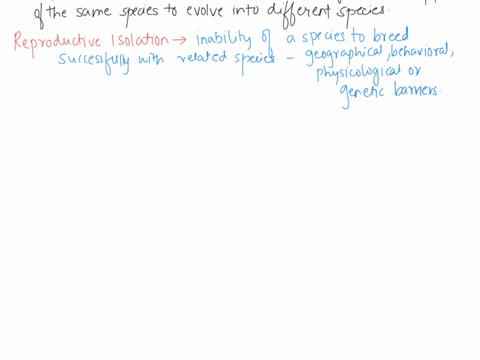 of the same species to evolve into different species.
Reproductive Isolation → inability of a species to breed
successfully with related species - geographical, behavioral,
physicological or
genetic barriers.